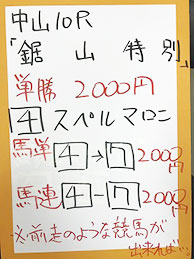 中山10R
「鋸山特別」
単勝 2000円
4 スペルマロン
馬単 4→7 2000円
馬連 4-7 2000円
※前走のような競馬が
出来れば…